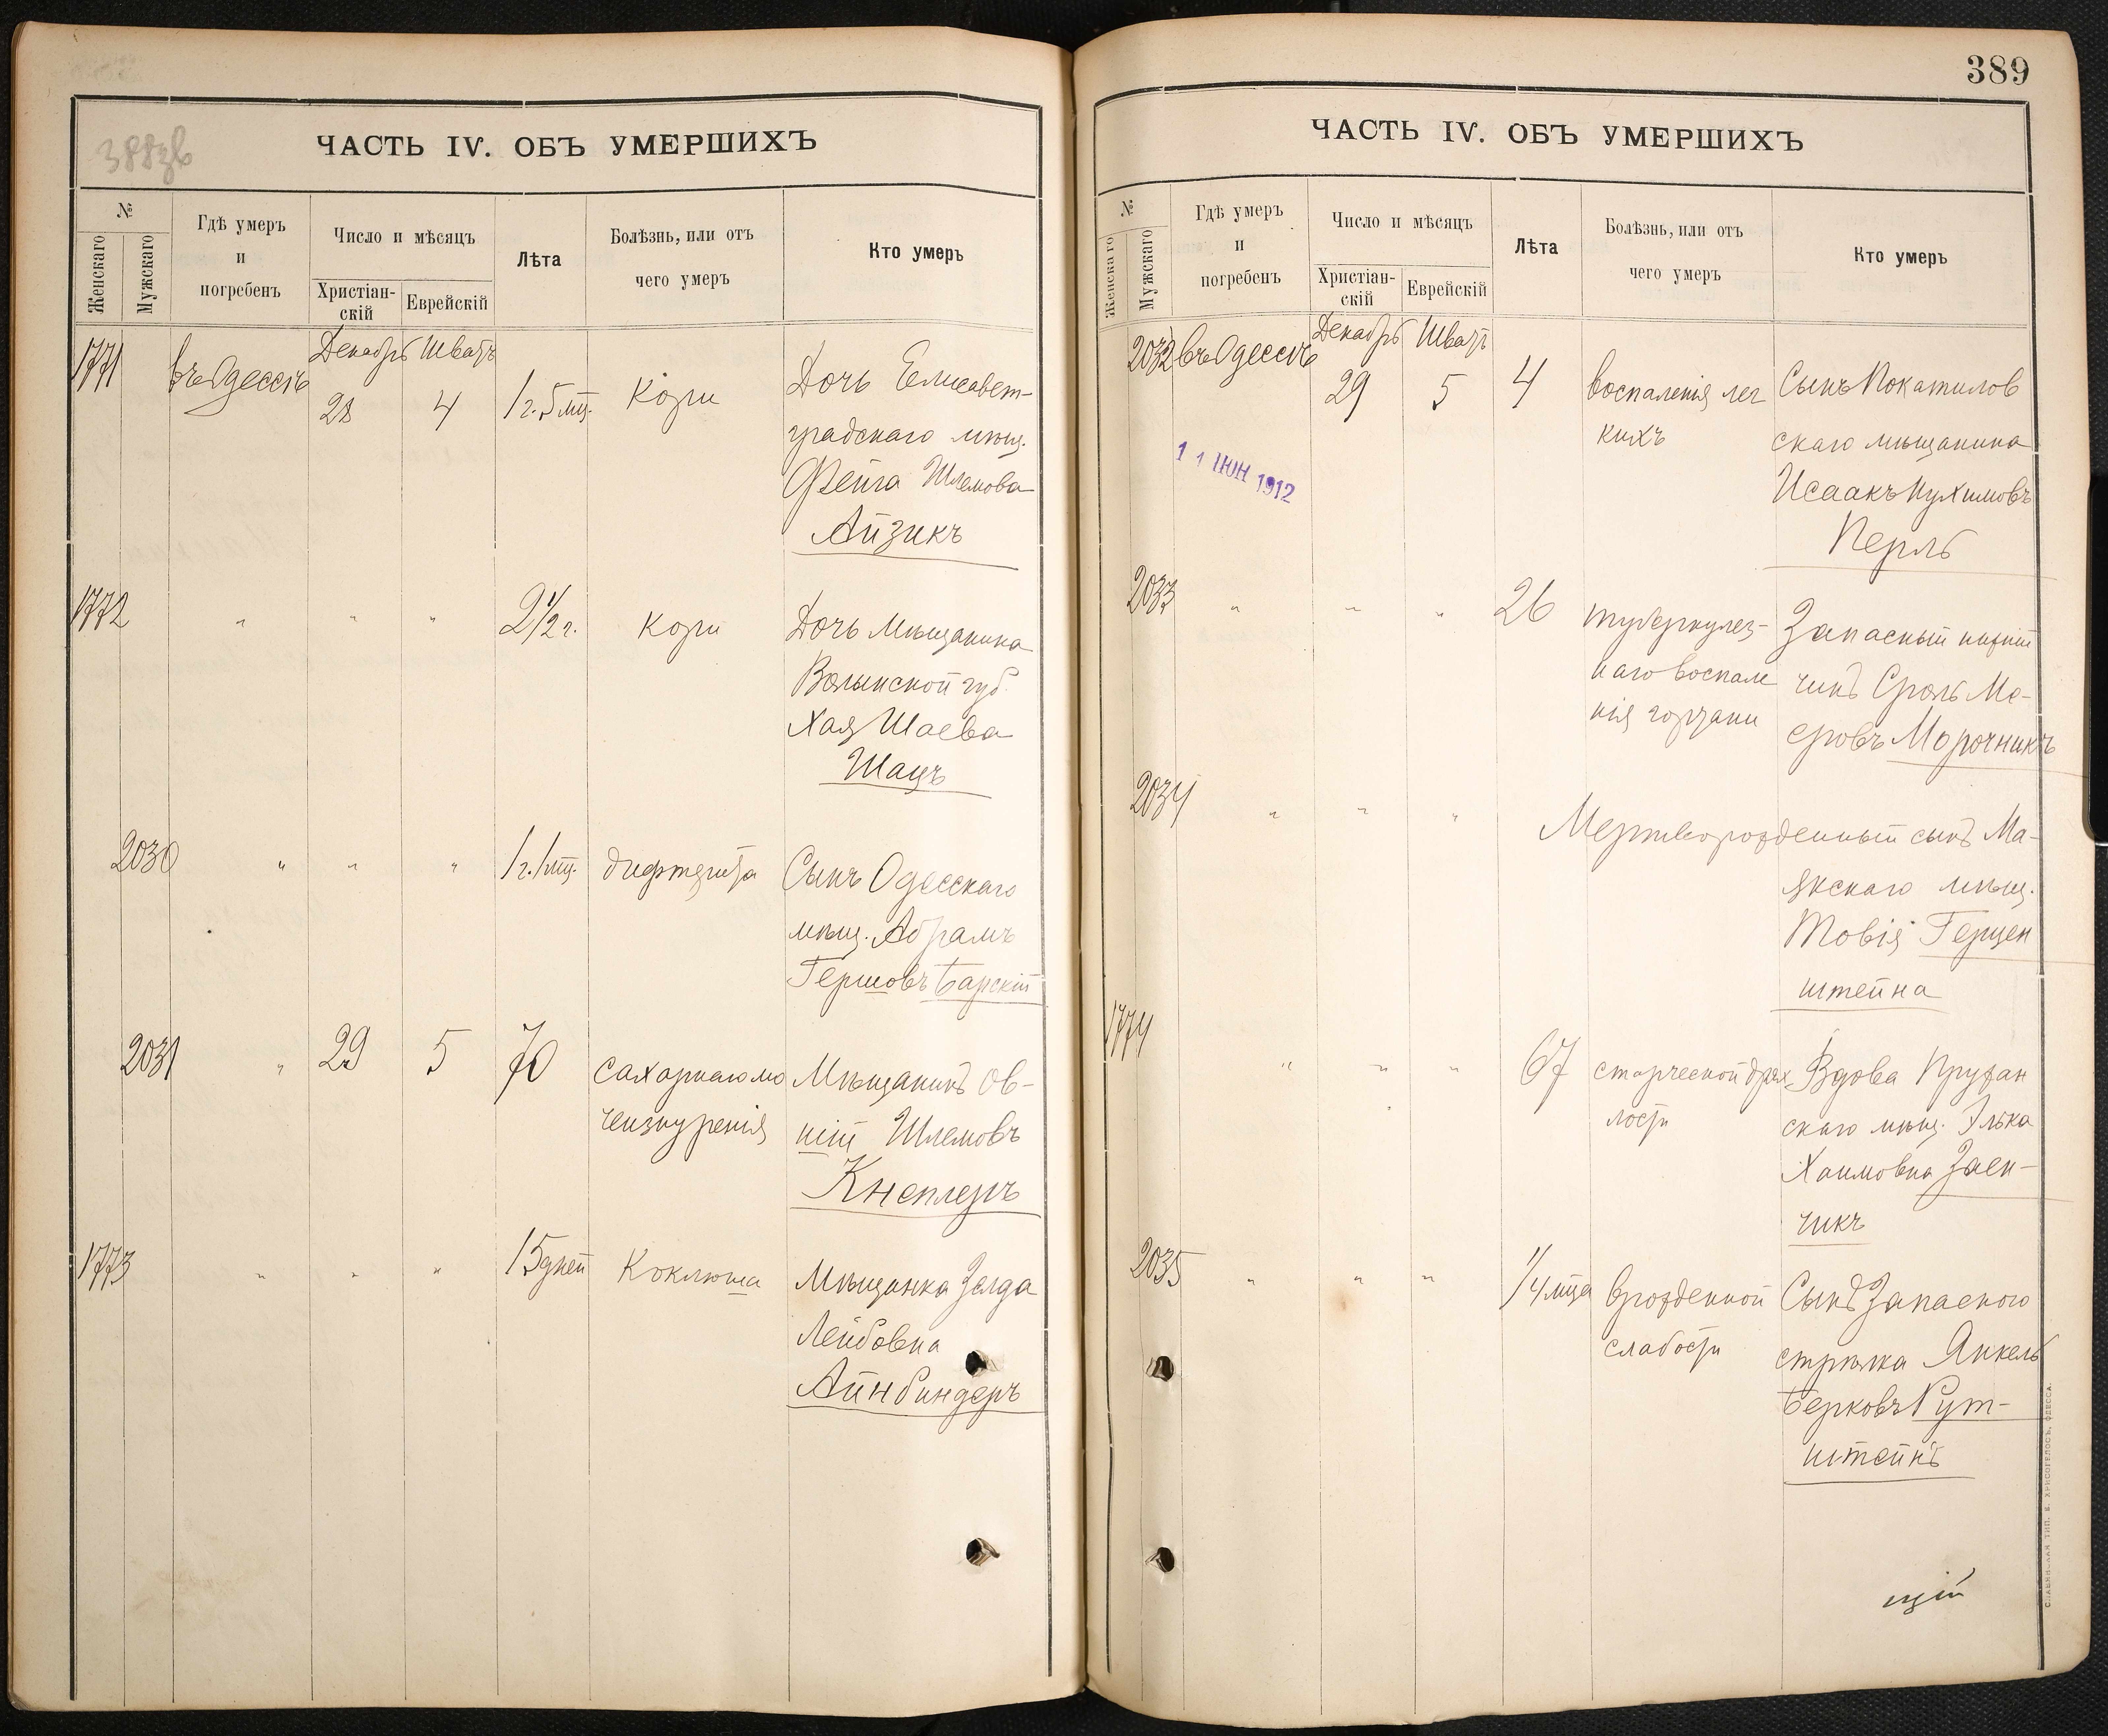 388зв
ЧАСТЬ IV. ОБЪ УМЕРШИХЪ
№
Женскаго
Мужскаго
Гдѣ умеръ
и
погребенъ
Число и мѣсяцъ
Христіан-
скій
Еврейскій
Лѣта
Болѣзнь, или отъ
чего умеръ
Кто умеръ
1771 въ Одессѣ Декабрь 28 Шватъ 4 1 г. 5 мц. Кори
Дочь Елисавет-
градскаго мѣщ.
Фейга Шлемова
Айзикъ
1772 " " " 2 1/2 г. кори
Дочь Мѣщанина
Волынской губ.
Хая Шаева
Шацъ
2030 " " " 1 г. 1 мц. дифтерита
Сынъ Одесскаго
мѣщ. Абрамъ
Гершовъ Барскій
2031 " 29 5 70
сахарнаго мо
чеизнуренія
Мѣщанинъ Ов-
шій Шлемовъ
Кнеплеръ
1773 " " " 15 дней Коклюша
Мѣщанка Зелда
Лейбовна
Айнбиндеръ
389
ЧАСТЬ IV. ОБЪ УМЕРШИХЪ
№
Женскаго
Мужскаго
Гдѣ умеръ
и
погребенъ
Число и мѣсяцъ
Христіан-
скій
Еврейскій
Лѣта
Болѣзнь, или отъ
чего умеръ
Кто умеръ
2032 въ Одессѣ Декабрь 29 Шватъ 5 4
воспаленія лег
кихъ
Сынъ Кокатилов
скаго мѣщанина
Исаакъ Нухимовъ
Перль
11 ІЮН 1912
2033 " " " 26
туберкулез-
наго воспале
нія гортани
Запасный нижній
чинъ Сроль Ме-
еровъ Морочникъ
2034 " " " Мертворожденный сынъ Ма-
якскаго мѣщ.
Товія Герцен
штейна
1774 " " " 67
старческой дрях
лости
Вдова Пружан
скаго мѣщ. Элька
Хаимовна Заен-
чикъ
2035 " " " 1/4 мца
врожденной
слабости
Сынъ Запасного
стрѣлка Янкель
Берковъ Рут-
штейнъ
СЛАВЯНСКАЯ ТИП. Е. ХРИСОГЕЛОСЪ, ОДЕССА.